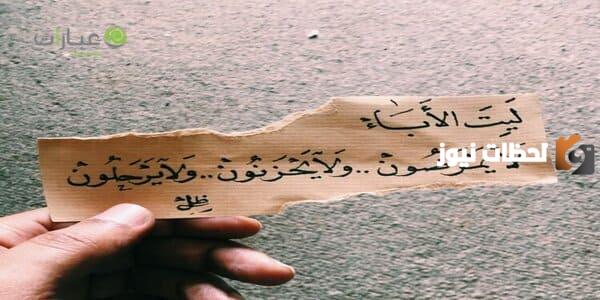 عبارات
لَيتَ الأَبَاء
لا يمرضون .. ولا يَحْزَنُون .. ولا يَرْحَلُون
ظِل
لحظات نيوز